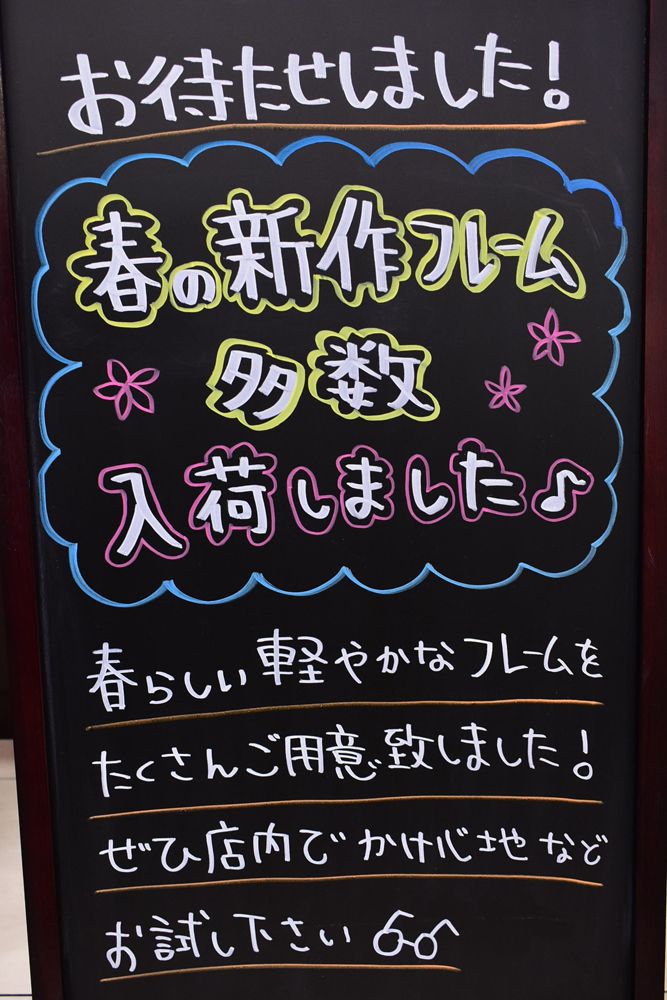 お待たせしました！
春の新作フレーム
多数
入荷しました♪
春らしい軽やかなフレームを
たくさんご用意致しました！
ぜひ店内でかけ心地など
お試し下さい